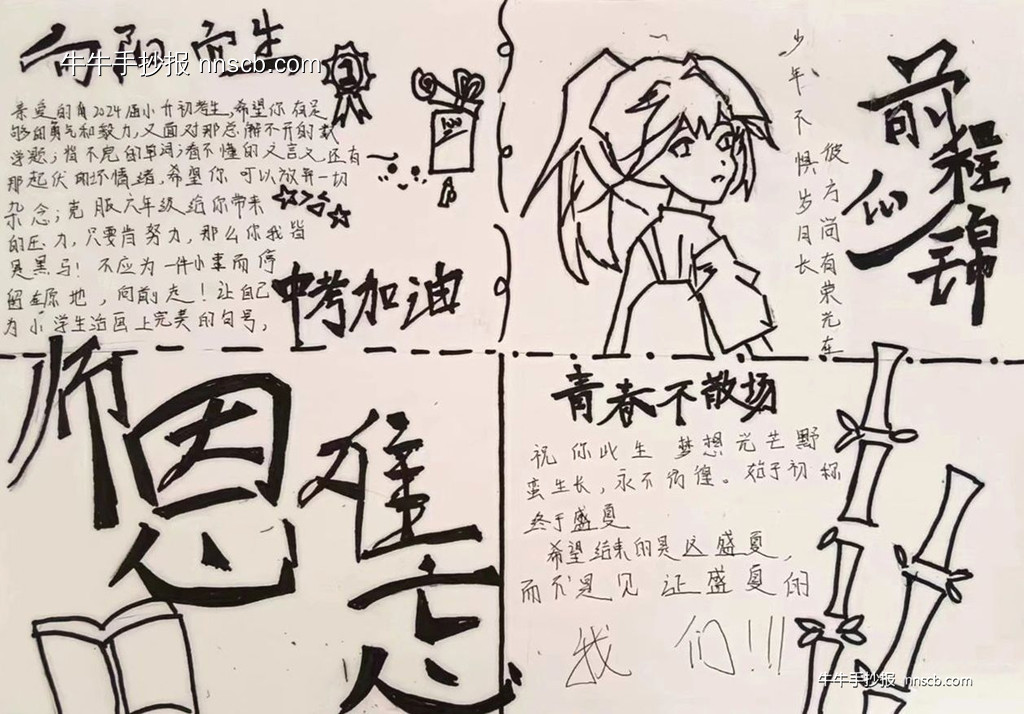 向阳而生
牛牛手抄报 nnscb.com
亲爱的2024届小升初考生,希望你有足
够的勇气和毅力,又面对那总解不开的数
学题;背不完的单词;看不懂的文言文,还有
那起伏的坏情绪,希望你可以放弃一切
杂念;克服六年级给你带来
的压力,只要肯努力,那么你我皆
是黑马!不应为一件小事而停
留在原地,向前走!让自己
为小学生活画上完美的句号,
100
中考加油
少年不惧岁月长
彼方尚有荣光在
前程似锦
师恩难忘
青春不散场
祝你此生梦想光芒野
蛮生长,永不彷徨。始于初秋
终于盛夏
希望结束的是这盛夏,
而不是见证盛夏的
我们!!!
牛牛手抄报 nnscb.com